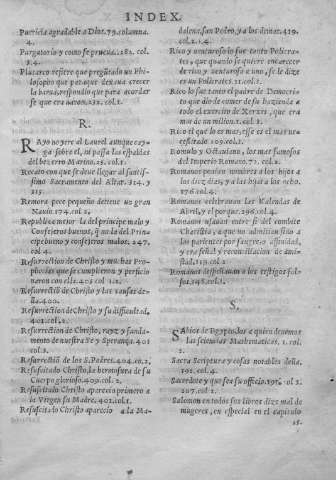 INDEX.
Puericia agradable a Dios. 79. columna.
4.
Purgatorio y como se prueua. 282. col.
1. 4.
Plutarco refiere que pregũtado un Phi-
losopho por que dexaua crecer
la barua, respondio que para acordar
se que era varon. 231. col. 1.
R.
RAyo no yere al Laurel aunque cay-
ga sobre el, ni passa las espaldas
del bezerro Marino. 25. col. 1.
Recato con que se deue llegar al sanctissi
simo Sacramento del Altar. 314. y
315.
Remora pece pequeño detiene un gran
Nauio. 174. col. 2.
Republica mejor es la del principe malo y
Consejeros buenos, q̃ no la del Prin-
cipe bueno y consejeros malos. 247.
col. 4.
Resurrection de Christo y muchas Pro-
phecias que se cumplieron y perficio
naron con ella. 401 col 1. 2.
Resurrectiõ de Christo y las causas de-
lla. 400.
Resurrection de Christo y su difficultad.
401. col. 2.
Resurrection de Christo, rayz y funda-
mento de nuestra Fe y Sperança. 401
col. 2.
Resurrectiõ de los S. Padres. 404. co. 2.
Resuscitado Christo, la hermosura de su
Cuerpo glorioso. 409. col. 2.
Resuscitado Christo aparecio primero a
la Virgen su Madre. 402. col. 1.
Resuscito Christo aparecio a la Ma-
dalena, san Pedro, y a los demas. 419.
col. 2. 1. 4.
Rico y venturoso lo fue tanto Policra-
tes, que quando se quiere encarecer
de rico y venturoso a uno, se le dize
es un Policrates. 11. col. 1.
Rico lo fue tanto el padre de Democri-
to que dio de comer de su hazienda a
todo el exercito de Xerxes, que era
mas de un million. 1. col. 1.
Rico el que lo es mas, esse es el mas ne-
cessitado. 109. col. 1.
Romulo y Octauiano, los mas famosos
del Imperio Romano. 71. col. 1.
Romanos ponian nombres a los hijos a
los diez dias, y a las hijas a los ocho.
176. col. 4.
Romanos celebrauan las Kalendas de
Abril, y el porque. 296. col. 4.
Romanos usauan entre si del combite
Charistia, a que no admittian sino a
las parientes por sangre o affinidad,
y era señal de conseruacion de ami-
stad. 319. col. 2.
Romanos despeñauan a los testigos fal-
sos. 348. col. 1.
S.
SAbios de Egypto, los a quien deuemos
las sciencias Mathematicas. 1. col.
2.
Sacra Scriptura y cosas notables della.
102. col. 4.
Sacerdote y que sea su officio. 191. col 2.
207. col. 2.
Salomon en todos sus libros dize mal de
mugeres, en especial en el capitulo
25.